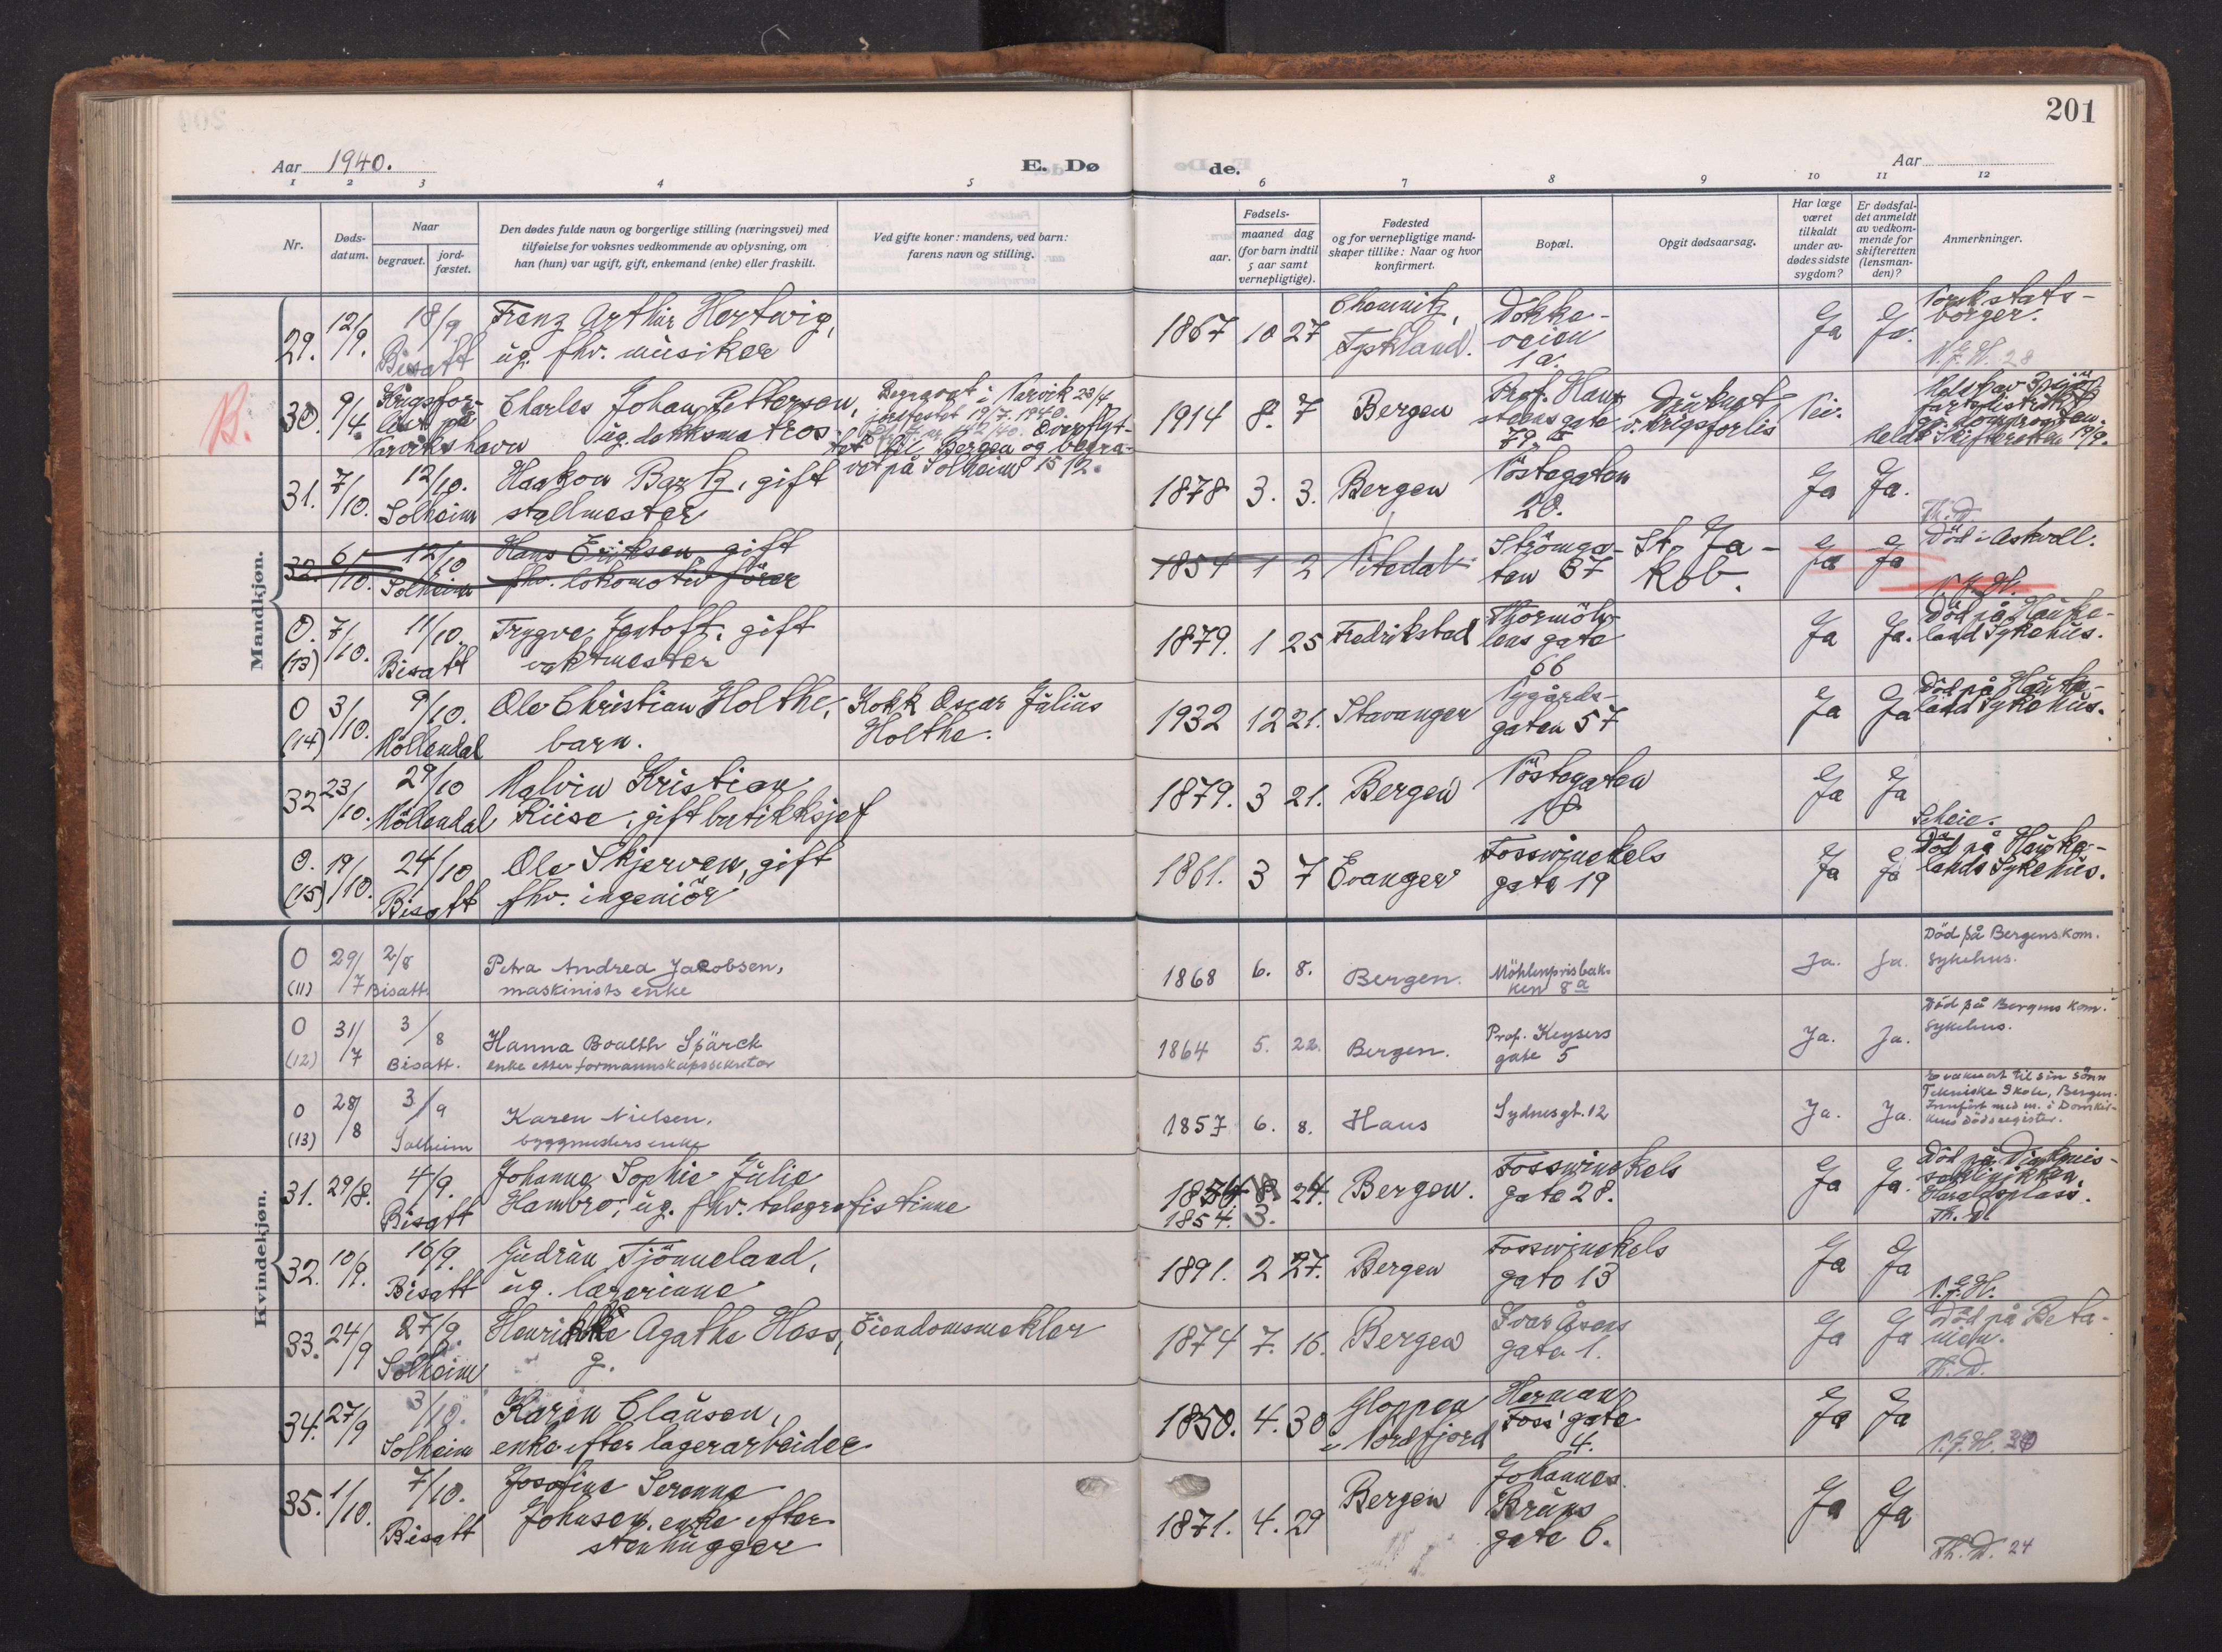 201
Aar 1940.
E. Dø
de.
Aar
1 2 3 4 5 6 7 8 9 10 11 12
Nr.
Døds-
datum.
Naar
begravet.
jord-
fæstet.
Den dødes fulde navn og borgerlige stilling (næringsvei) med
tilføielse for voksnes vedkommende av oplysning, om
han (hun) var ugift, gift, enkemand (enke) eller fraskilt.
Ved gifte koner: mandens, ved barn:
farens navn og stilling.
Fødsels-
aar.
maaned dag
(for barn indtil
5 aar samt
vernepligtige).
Fødested
og for vernepligtige mand-
skaper tillike: Naar og hvor
konfirmert.
Bopæl.
Opgit dødsaarsag.
Har læge
været
tilkaldt
under av-
dødes sidste
sygdom?
Er dødsfal-
det anmeldt
av vedkom-
mende for
skifteretten
(lensman-
den)?
Anmerkninger.
Mandkjøn.
29. 12/9. 18/9 Bisatt
Franz Arthur Hertwig,
ug. fhv. musiker
1867 10 27
Chemnitz,
Tyskland.
Dokke-
veien
1a.
Ja Ja.
Norsk stats-
borger.
N.J.H. 28
B.
30. 9/4.
Krigsfor-
list på
Narvikshavn
Charles Johan Pettersen,
ug. dekksmatros
Begravet i Narvik 23/4
jordfestet 19/7 1940.
Overflyt-
tet til Bergen og begra-
vet på Solheim 15/12.
1914 8. 7 Bergen
Prof. Hans-
steensgate
79.
Druknet
v. krigsforlis
Nei.
Meldt Skifteretten 19/9.
31. 7/10. 12/10. Solheim
Haakon Bartz, gift
stallmester
1878 3. 3. Bergen
Nöstegaten
20.
Ja Ja.
Th. D.
32. 6/10. 12/10 Solheim
Hans Eriksen gift
fhv. lokomotivförer
1854 1 2 Nitedal
Strömga-
ten 67
St. Ja-
kob.
Ja Ja
Död i Askvoll.
N.J.H.
0. (13) 7/10. 11/10. Bisatt
Trygve Jentoft, gift
vaktmester
1879. 1 25 Fredrikstad
Thormöh-
lens gate
66
Ja Ja.
Död på Hauke-
land Sykehus.
0 (14) 3/10. 9/10. Möllendal
Ole Christian Holthe,
barn.
Kokk Oscar Julius
Holthe.
1932 12 21. Stavanger
Nygårds-
gaten 57
Ja Ja
Död på Hauke-
land Sykehus.
32 23/10. 29/10 Möllendal
Malvin Kristian
Riise, gift butikksjef
1879. 3 21. Bergen
Nöstegaten
18
Ja Ja
Scheie.
0. (15) 19/10. 24/10 Bisatt
Ole Skjerven, gift
fhv. ingeniör
1861. 3 7 Evanger
Fosswinckels
gate 19
Ja Ja
Död på Hauke-
lands Sykehus.
Kvindekjøn.
0 (11) 29/7 2/8 Bisatt.
Petra Andrea Jacobsen,
maskinists enke
1868 6. 8. Bergen.
Möhlenprisbak-
ken 8a
Ja. Ja.
Död på Bergens kom.
sykehus.
0 (12) 31/7 3/8 Bisatt.
Hanna Boalth Spärck
enke etter formannskapssekretær
1864 5. 22. Bergen.
Prof. Keysers
gate 5
Ja. Ja.
Död på Bergens kom.
sykehus.
0 (13) 28/8 3/9 Solheim
Karen Nielsen,
byggmesters enke
1857 6. 8. Haus
Sydnesgt. 12
Ja. Ja.
Evakuert til sin sönn
Tekniske Skole, Bergen.
Innfört med nr. i Domkir-
kens dödsregister.
31. 29/8. 4/9. Bisatt
Johanne Sophie Julie
Hambro, ug. fhv. telegrafistinne
1854. 3. 24. Bergen.
Fosswinckels
gate 28.
Ja Ja.
Död på Diakonis-
seklinikken,
Haraldsplass.
Th. D.
32. 10/9. 16/9. Bisatt
Gudrun Tjönneland,
ug. lærerinne
1891. 2 27. Bergen
Fosswinckels
gate 13
Ja Ja
N.J.H.
33. 24/9 27/9. Solheim
Henrikke Agathe Hess,
g.
Eiendomsmekler
1874 7. 16. Bergen
Ivar Åsens
gate 1.
Ja Ja
Död på Beta-
nien.
Th. D.
34. 27/9 3/10. Solheim
Karen Clausen,
enke efter lagerarbeider
1850. 4. 30
Gloppen
i Nordfjord
Herman
Foss' gate
4.
Ja Ja
N.J.H. 30
35. 1/10. 7/10. Bisatt
Josefine Serenne
Johnsen, enke efter
stenhugger
1871. 4. 29 Bergen
Johannes
Bruns
gate 6.
Ja Ja
Th. D. 24